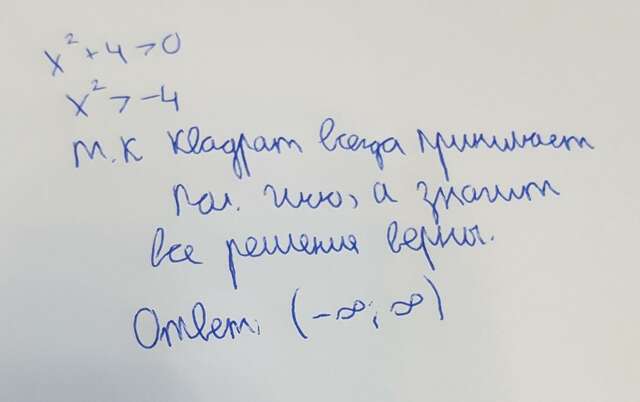 x² + 4 > 0
x² > -4
т.к квадрат всегда принимает
пол. число, а значит
все решения верны.
Ответ: (-∞; ∞)